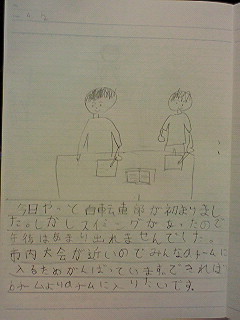 今日やっと自転車市が初まりまし
た。しかしスイミングがあったので
午後はあまり出れませんでした。
市内大会が近いのでみんなaチームに
入るためがんばっています。できれば
bチームよりaチームに入りたいです。